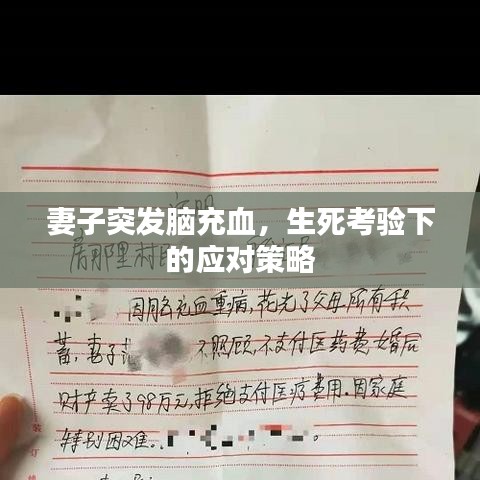 妻子突发脑充血，生死考验下
的应对策略
因脑充血重病，花光了父母所有积
蓄，妻子 不照顾，不支付医药费，婚后
财产卖了98万元，拒绝支付医疗费用。因家庭
特别困难。
装
订